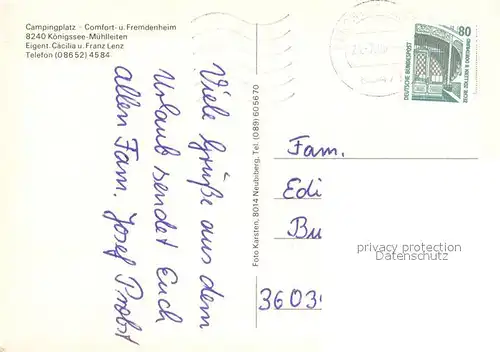 Campingplatz - Comfort- u. Fremdenheim
8240 Königssee-Mühlleiten
Eigent. Cäcilia u. Franz Lenz
Telefon (0 86 52) 45 84
Viele Grüße aus dem
Urlaub sendet Euch
allen Fam. Josef Probst
Foto Karsten, 8014 Neubiberg, Tel. (089) 605670
80
DEUTSCHE BUNDESPOST
Fam.
Edi
Bu
3603
privacy protection
Datenschutz